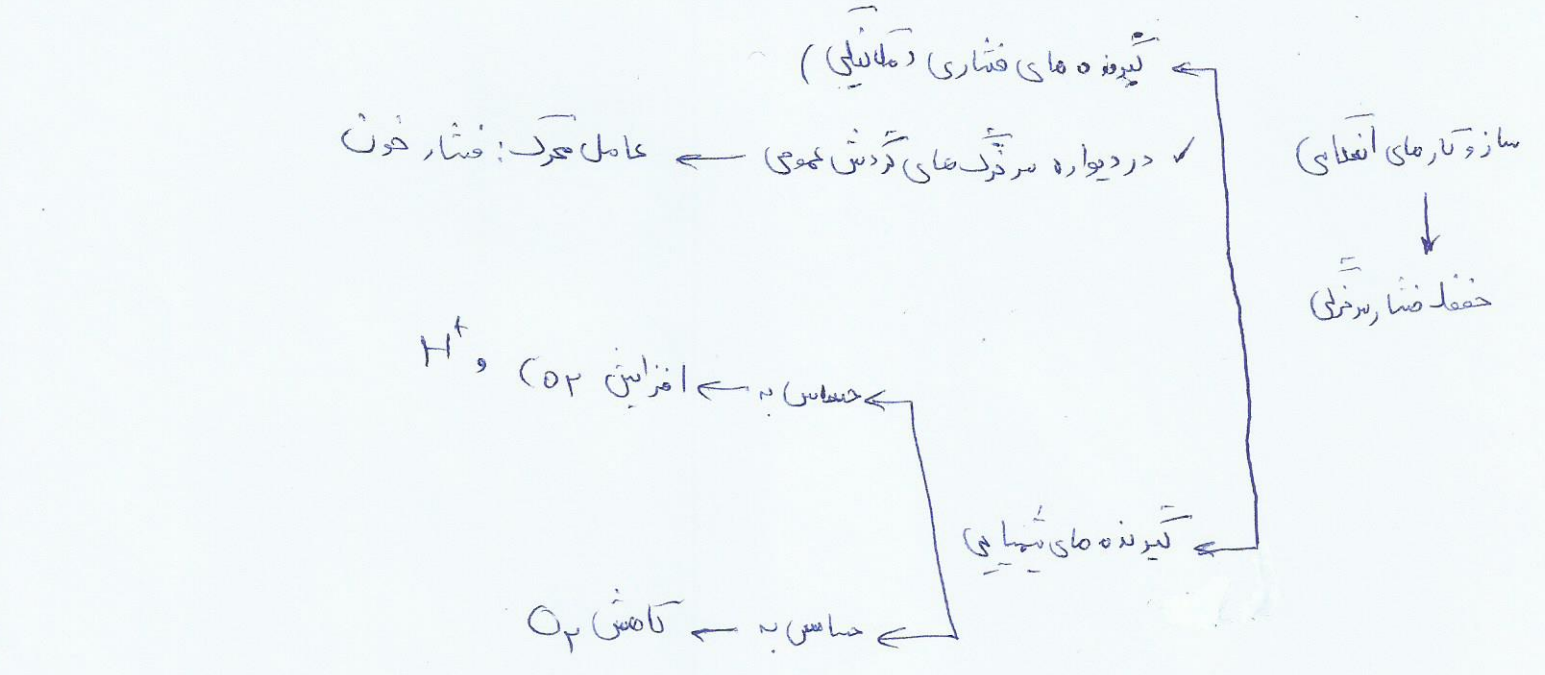 ساز و کارهای انعکاسی
↓
حفظ فشار سرخرگی
گیرنده های فشاری (مکانیکی)
✓ در دیواره سرخرگ های گردش عمومی ← عامل محرک: فشار خون
گیرنده های شیمیایی
حساس به ← افزایش CO۲ و H+
حساس به ← کاهش O۲